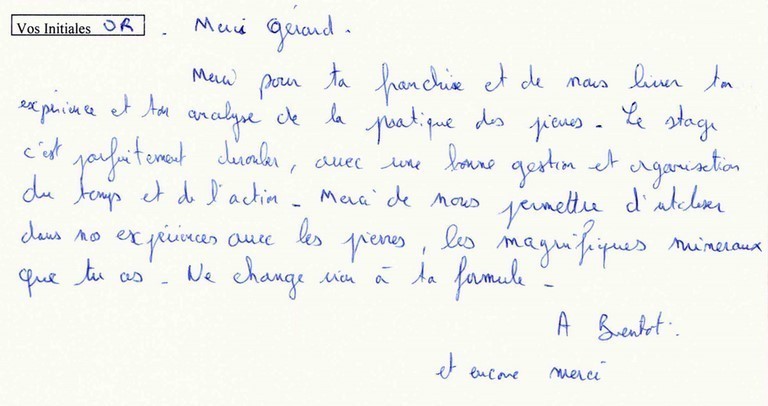 Vos Initiales OR . Merci Gérard .
Merci pour ta franchise et de nous livrer ton
expérience et ton analyse de la pratique des pierres - Le stage
c'est parfaitement derouler, avec une bonne gestion et organisation
du temps et de l'action - Merci de nous permettre d'utiliser
dans nos expériences avec les pierres, les magnifiques mineraux
que tu as - Ne change rien à ta formule -
A Bientot.
et encore merci